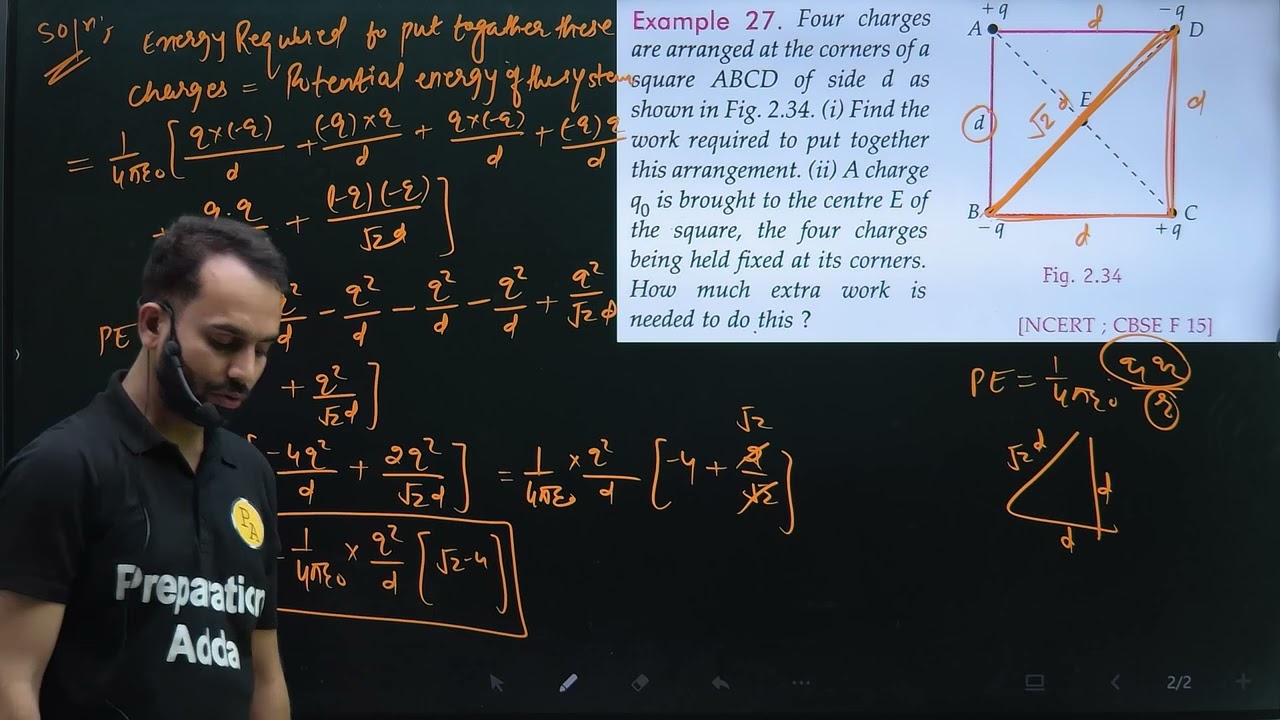 Soln:
Energy Required to put together these
charges = Potential energy of the system
= 1/4πε₀ [ q×(-q)/d + (-q)×q/d + q×(-q)/d + (-q)q/d
+ q.q/ + (-q)(-q)/√2d ]
PE q²/d - q²/d - q²/d - q²/d + q²/√2d
+ q²/√2d ]
[ -4q²/d + 2q²/√2d ] = 1/4πε₀ × q²/d [ -4 + 2/√2 ]
√2
1/4πε₀ × q²/d [ √2-4 ]
Example 27. Four charges
are arranged at the corners of a
square ABCD of side d as
shown in Fig. 2.34. (i) Find the
work required to put together
this arrangement. (ii) A charge
q₀ is brought to the centre E of
the square, the four charges
being held fixed at its corners.
How much extra work is
needed to do this ?
+q d -q
A D
E
d √2 d d
B C
-q d +q
Fig. 2.34
[NCERT ; CBSE F 15]
PE = 1/4πε₀ q₁q₂/r
√2d d
d
PA
Preparation
Adda
2/2